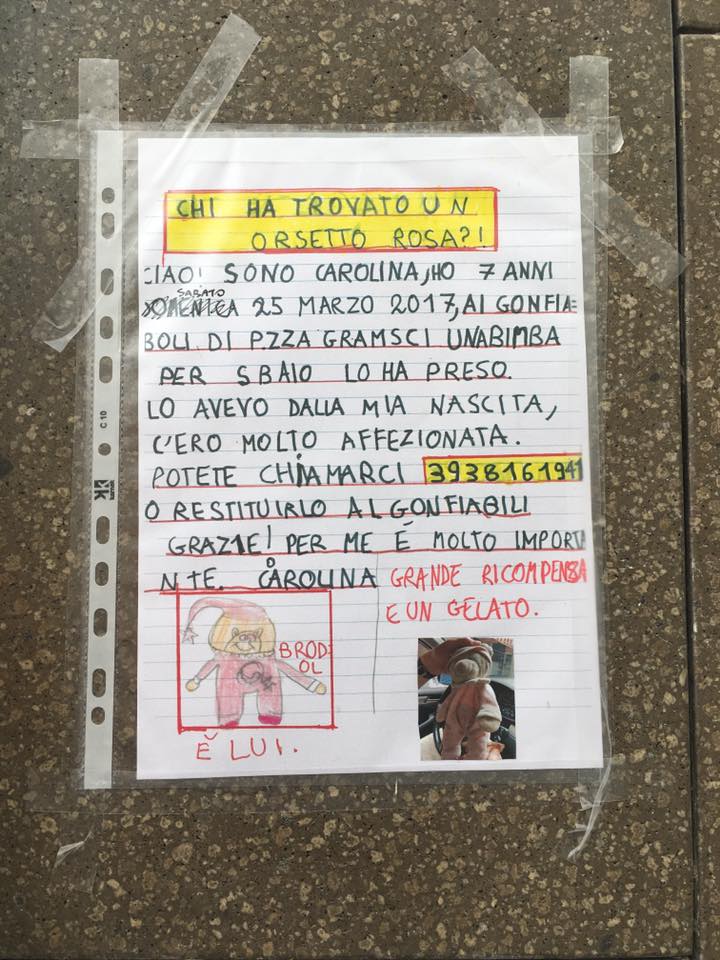 CHI HA TROVATO UN
ORSETTO ROSA?!
CIAO! SONO CAROLINA, HO 7 ANNI
SABATO
DOMENICA 25 MARZO 2017, AI GONFIA=
BOLI. DI P.ZZA GRAMSCI UNA BIMBA
PER SBAIO LO HA PRESO.
LO AVEVO DALLA MIA NASCITA,
C'ERO MOLTO AFFEZIONATA.
POTETE CHIAMARCI 3938161941
O RESTITUIRLO AL GONFIABILI
GRAZIE! PER ME È MOLTO IMPORTA
NTE. CAROLINA
GRANDE RICOMPENSA
E UN GELATO.
BROD
OL
È LUI.
C 10